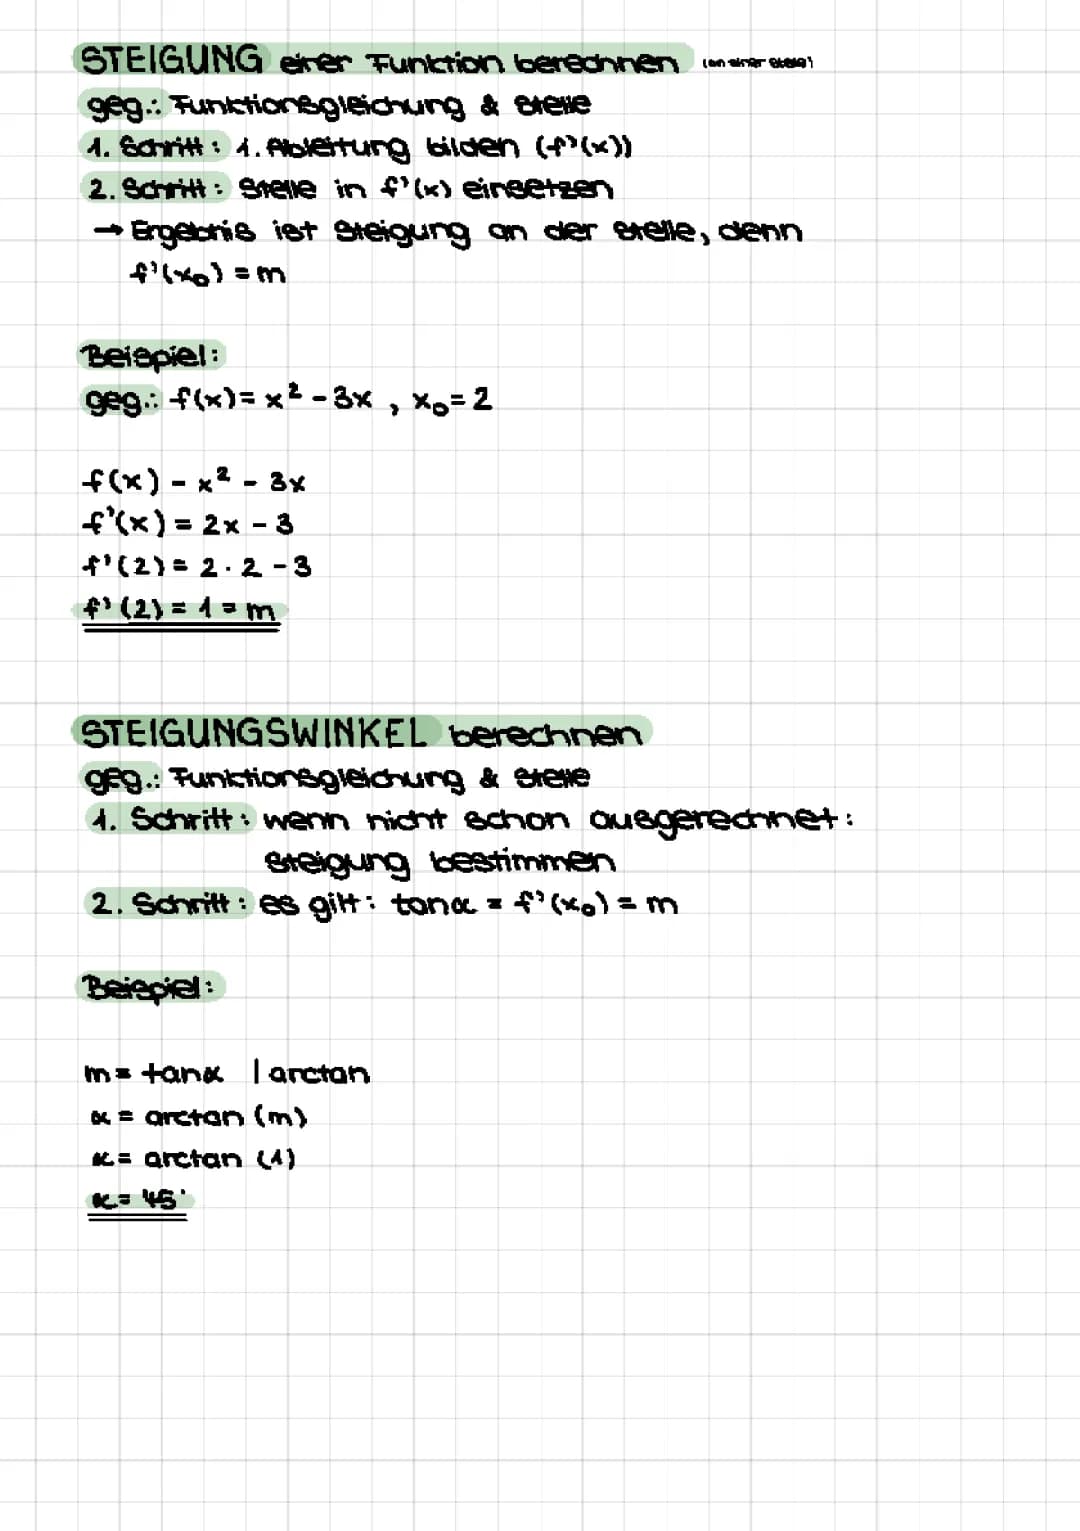 STEIGUNG einer Funktion berechnen (an einer Stelle)
geg.: Funktionsgleichung & Stelle
1. Schritt: 1. Ableitung bilden (f'(x))
2. Schritt: Stelle in f'(x) einsetzen
→ Ergebnis ist Steigung an der Stelle, denn
f'(x₀) = m
Beispiel:
geg.: f(x) = x² - 3x , x₀ = 2
f(x) = x² - 3x
f'(x) = 2x - 3
f'(2) = 2 · 2 - 3
f'(2) = 1 = m
STEIGUNGSWINKEL berechnen
geg.: Funktionsgleichung & Stelle
1. Schritt: wenn nicht schon ausgerechnet:
Steigung bestimmen
2. Schritt: es gilt: tan α = f'(x₀) = m
Beispiel:
m = tan α | arctan
α = arctan (m)
α = arctan (1)
α = 45°